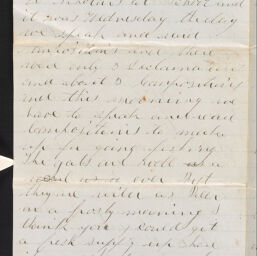 at school and
it was Wednesday the day
we speak and read
compositions and there
were only 3 declamations
and about 3 compositions
and this morning we
have to speak and read
compositions to make
up for going fishing
The gals are well as a
as ever But
they are wilder as Deer
on a frosty morning I
think you could get
a fresh supply up here